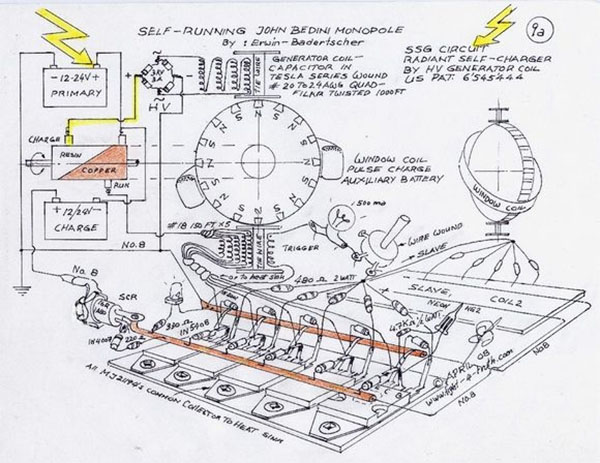 SELF-RUNNING JOHN BEDINI MONOPOLE
By: Erwin-Badertscher
9a
SSG CIRCUIT
RADIANT SELF-CHARGER
BY HV GENERATOR COIL
US PAT. 6'545'444
GENERATOR COIL-
CAPACITOR IN
TESLA SERIES WOUND
#20 TO 24 AWG QUAD-
FILAR TWISTED 1000FT
- 12-24V +
PRIMARY
HV
CHARGE
RESIN
COPPER
RUN
+ 12/24V -
CHARGE
No. 8
N S N S N S N S
WINDOW COIL
PULSE CHARGE
AUXILIARY BATTERY
WINDOW COIL
#18 150 FT x5
TRIGGER
500 ma
WIRE WOUND
SLAVE
480 Ω 2 WATT
SLAVE,
COIL 2
NEON
NE2
No. 8
SCR
330 Ω
1N5408
1N4007
220 Ω
47K 1/2 WATT
APRIL
08
No. 8
No. 8
All MJ21194's COMMON COLLECTOR TO HEAT SINK